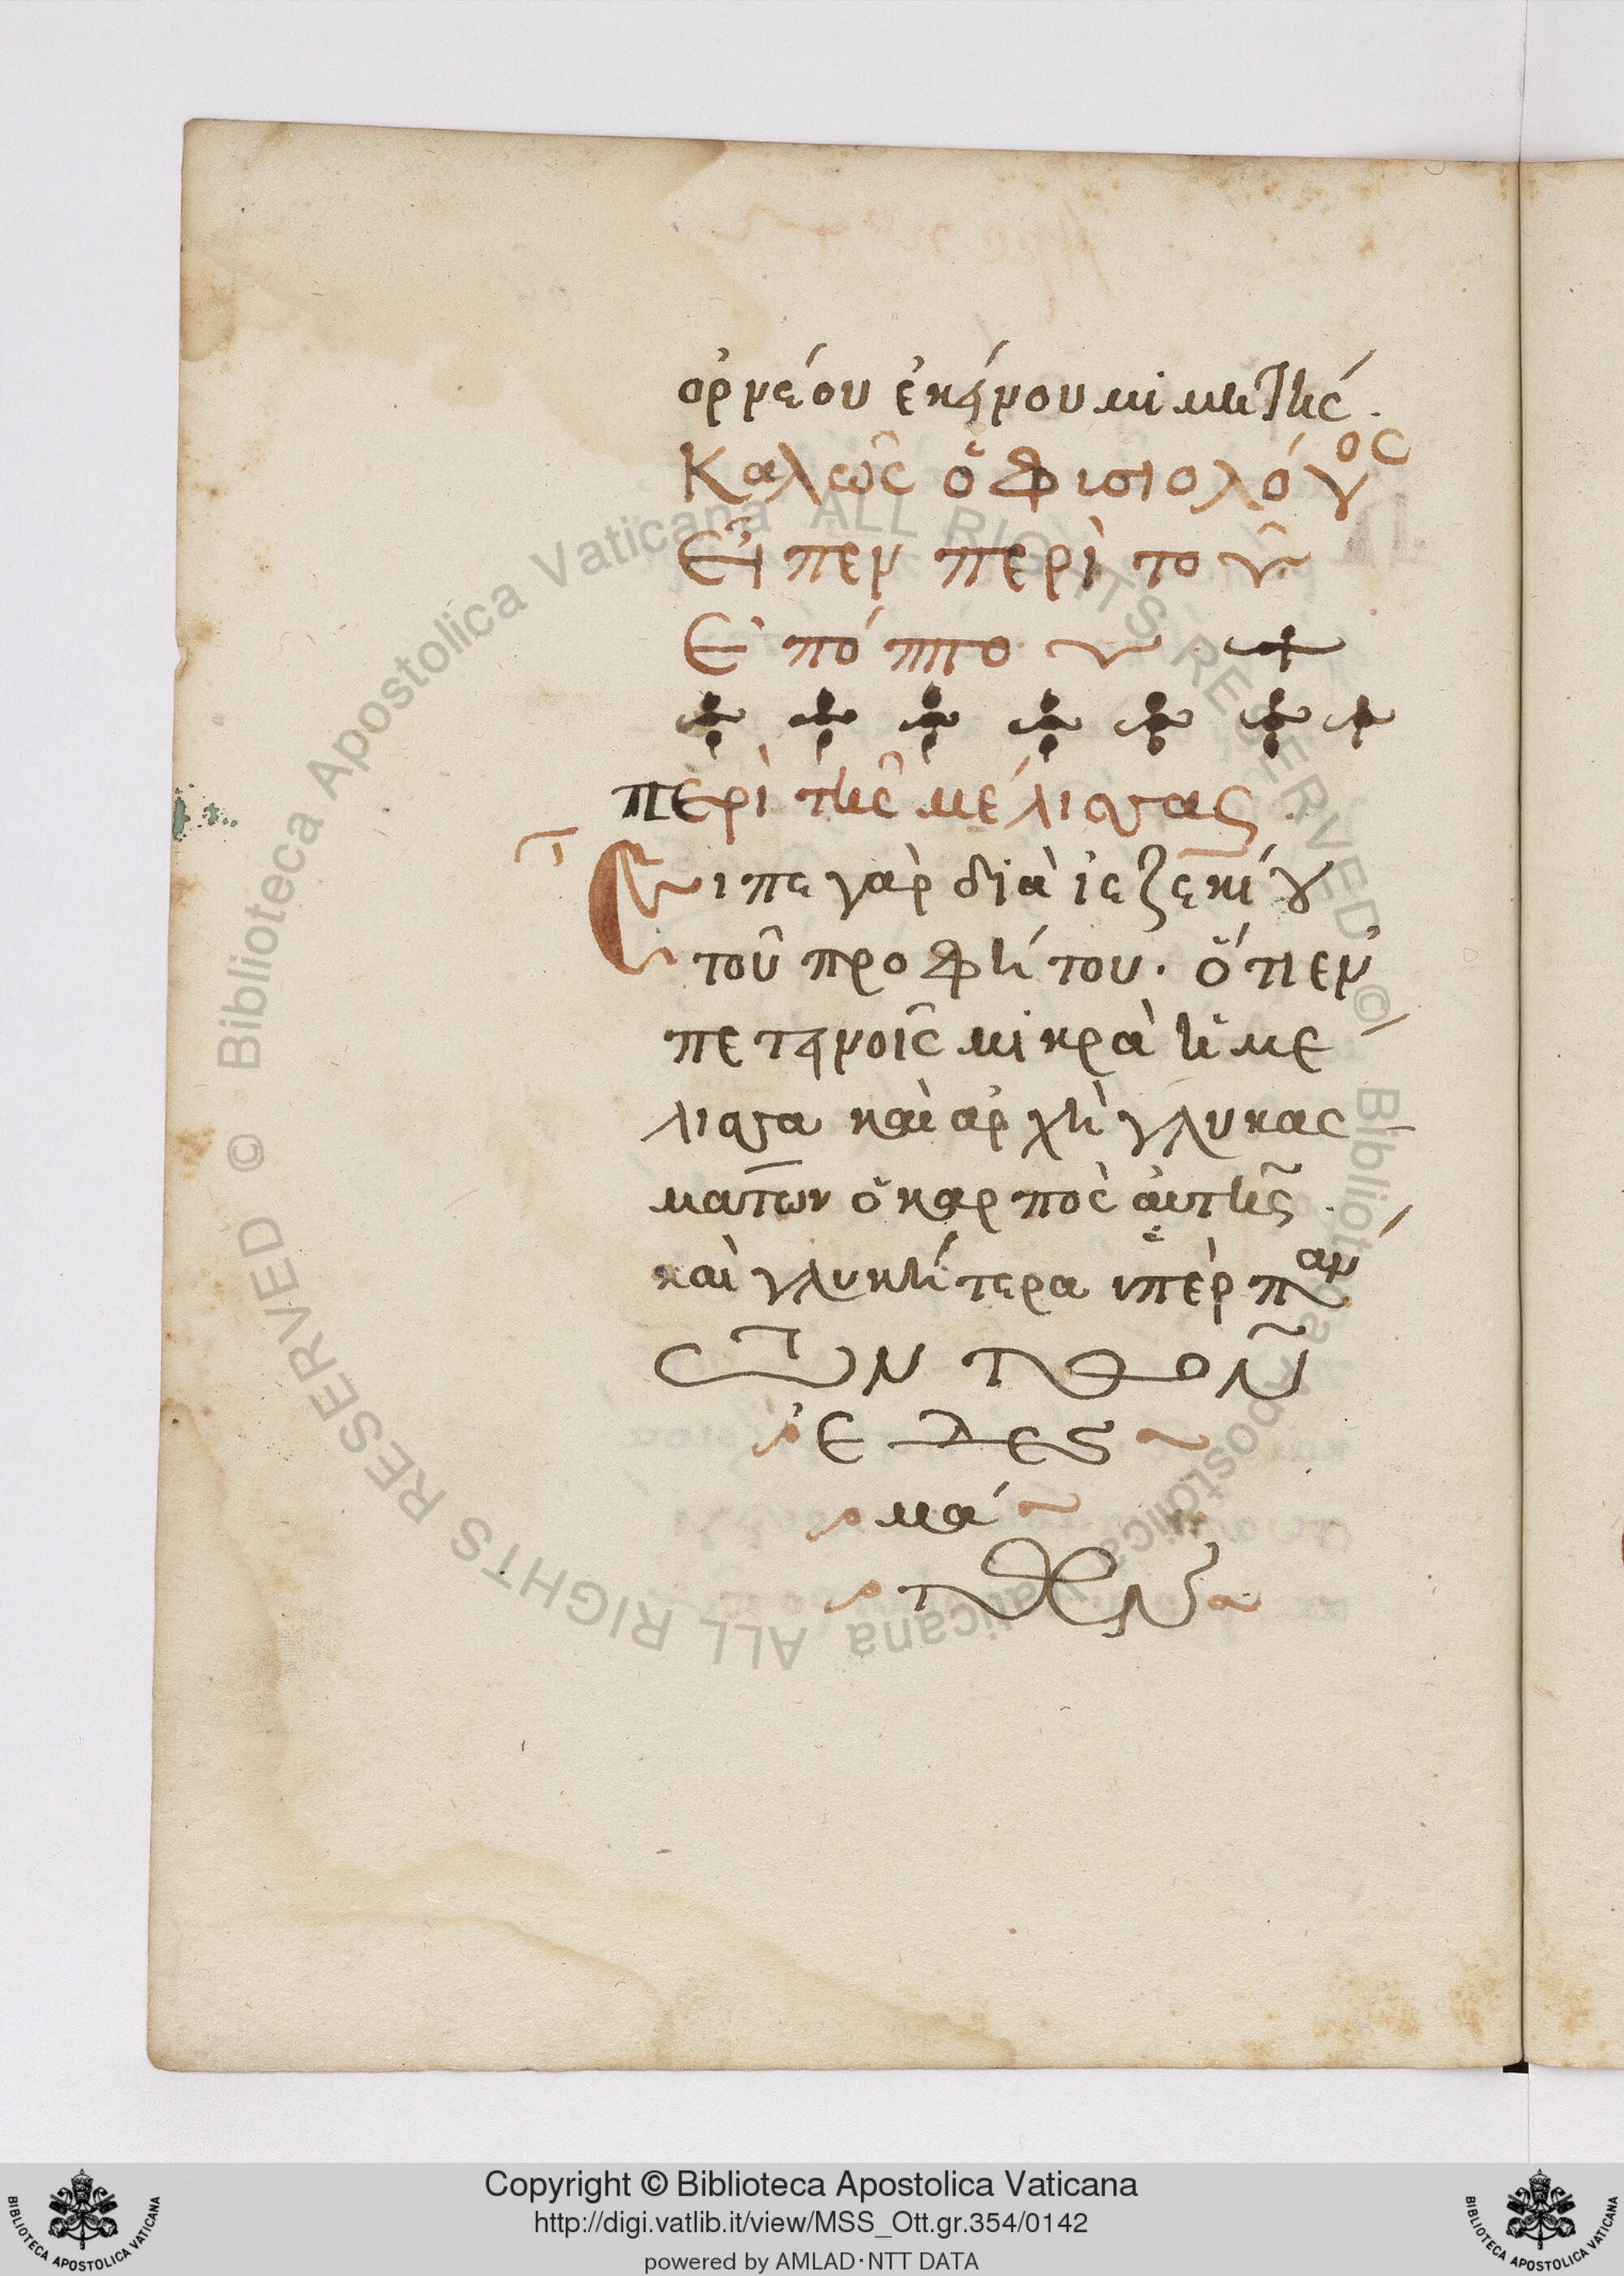 ὀρνέου ἐκείνου μιμητής.
Καλῶς ὁ Φισιολόγος
Εἶπεν περὶ τοῦ
Ἐπόππου
περὶ τῆς μέλισσας.
Εἶπε γὰρ διὰ ἰεζεκίου
τοῦ προφήτου. ὅτι ἐν
πετεινοῖς μικρὰ ἡ με
λισσα καὶ ἀρχὴ γλυκας
ματων ὁ καρπὸς ἀυτῆς.
καὶ γλυκήτερα ὑπὲρ παν
των τῶν
ἐδες
μά
των
Copyright © Biblioteca Apostolica Vaticana
http://digi.vatlib.it/view/MSS_Ott.gr.354/0142
powered by AMLAD·NTT DATA
BIBLIOTECA APOSTOLICA VATICANA
BIBLIOTECA APOSTOLICA VATICANA
© Biblioteca Apostolica Vaticana ALL RIGHTS RESERVED
© Biblioteca Apostolica Vaticana ALL RIGHTS RESERVED